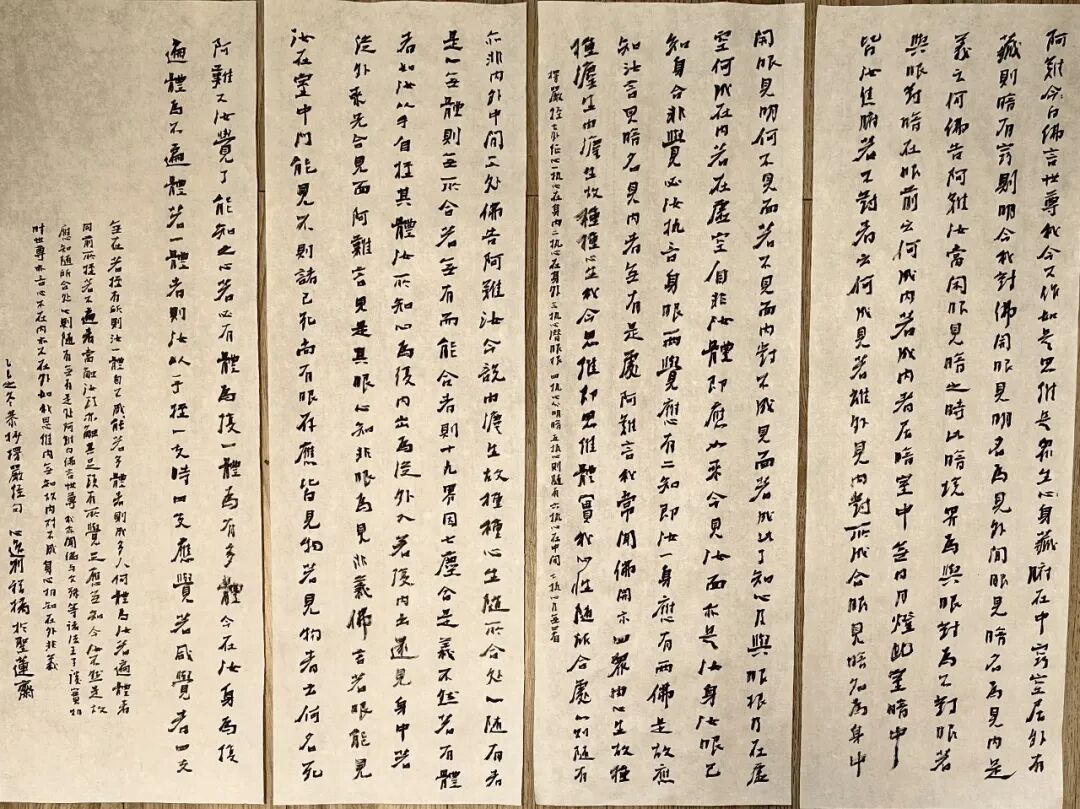 阿難今白佛言世尊我今又作如是思惟是眾生心身藏腑在中竅穴居外有
藏則暗有竅則明今我對佛開眼見明名為見外閉眼見暗名為見內是
義云何佛告阿難汝當閉眼見暗之時此暗境界為與眼對為不對眼若
與眼對暗在眼前云何成內若成內者居暗室中無日月燈此室暗中
皆汝焦腑若不對者云何成見若離外見內對所成合眼見暗名為身中
開眼見明何不見面若不見面內對不成見面若成此了知心及與眼根乃在虛
空何成在內若在虛空自非汝體即應如來今見汝面亦是汝身汝眼已
知身合非覺必汝執言身眼兩覺應有二知即汝一身應有兩佛是故應
知汝言見暗名見內者無有是處阿難言我常聞佛開示四眾由心生故種
種法生由法生故種種心生我今思惟即思惟體實我心性隨所合處心則隨有
楞嚴經七處征心一執心在身內二執心在身外三執心潛眼根四執心明暗五執心則隨有六執心在中間七執心無著
亦非內外中間三處佛告阿難汝今說由法生故種種心生隨所合處心隨有者
是心無體則無所合若無有而能合者則十九界因七塵合是義不然若有體
者如汝以手自挃其體汝所知心為復內出為從外入若復內出還見身中若
從外來先合見面阿難言見是其眼心知非眼為見非義佛言若眼能見
汝在室中門能見不則諸已死尚有眼存應皆見物若見物者云何名死
阿難又汝覺了能知之心若必有體為復一體為有多體今在汝身為復
遍體為不遍體若一體者則汝以手挃一支時四支應覺若咸覺者四支
無在若挃有所則汝一體自不成能若多體者則成多人何體為汝若遍體者
同前所挃若不遍者當觸汝頭亦觸其足頭有所覺足應無知今汝不然是故
應知隨所合處心則隨有無有是處阿難白佛言世尊我亦聞佛與文殊等諸法王子談實相
時世尊亦言心不在內亦不在外如我思惟內無知故內不成身心相知在外非義
乙巳之冬恭抄楞嚴經句 心逸 程楠於聖蓮齋